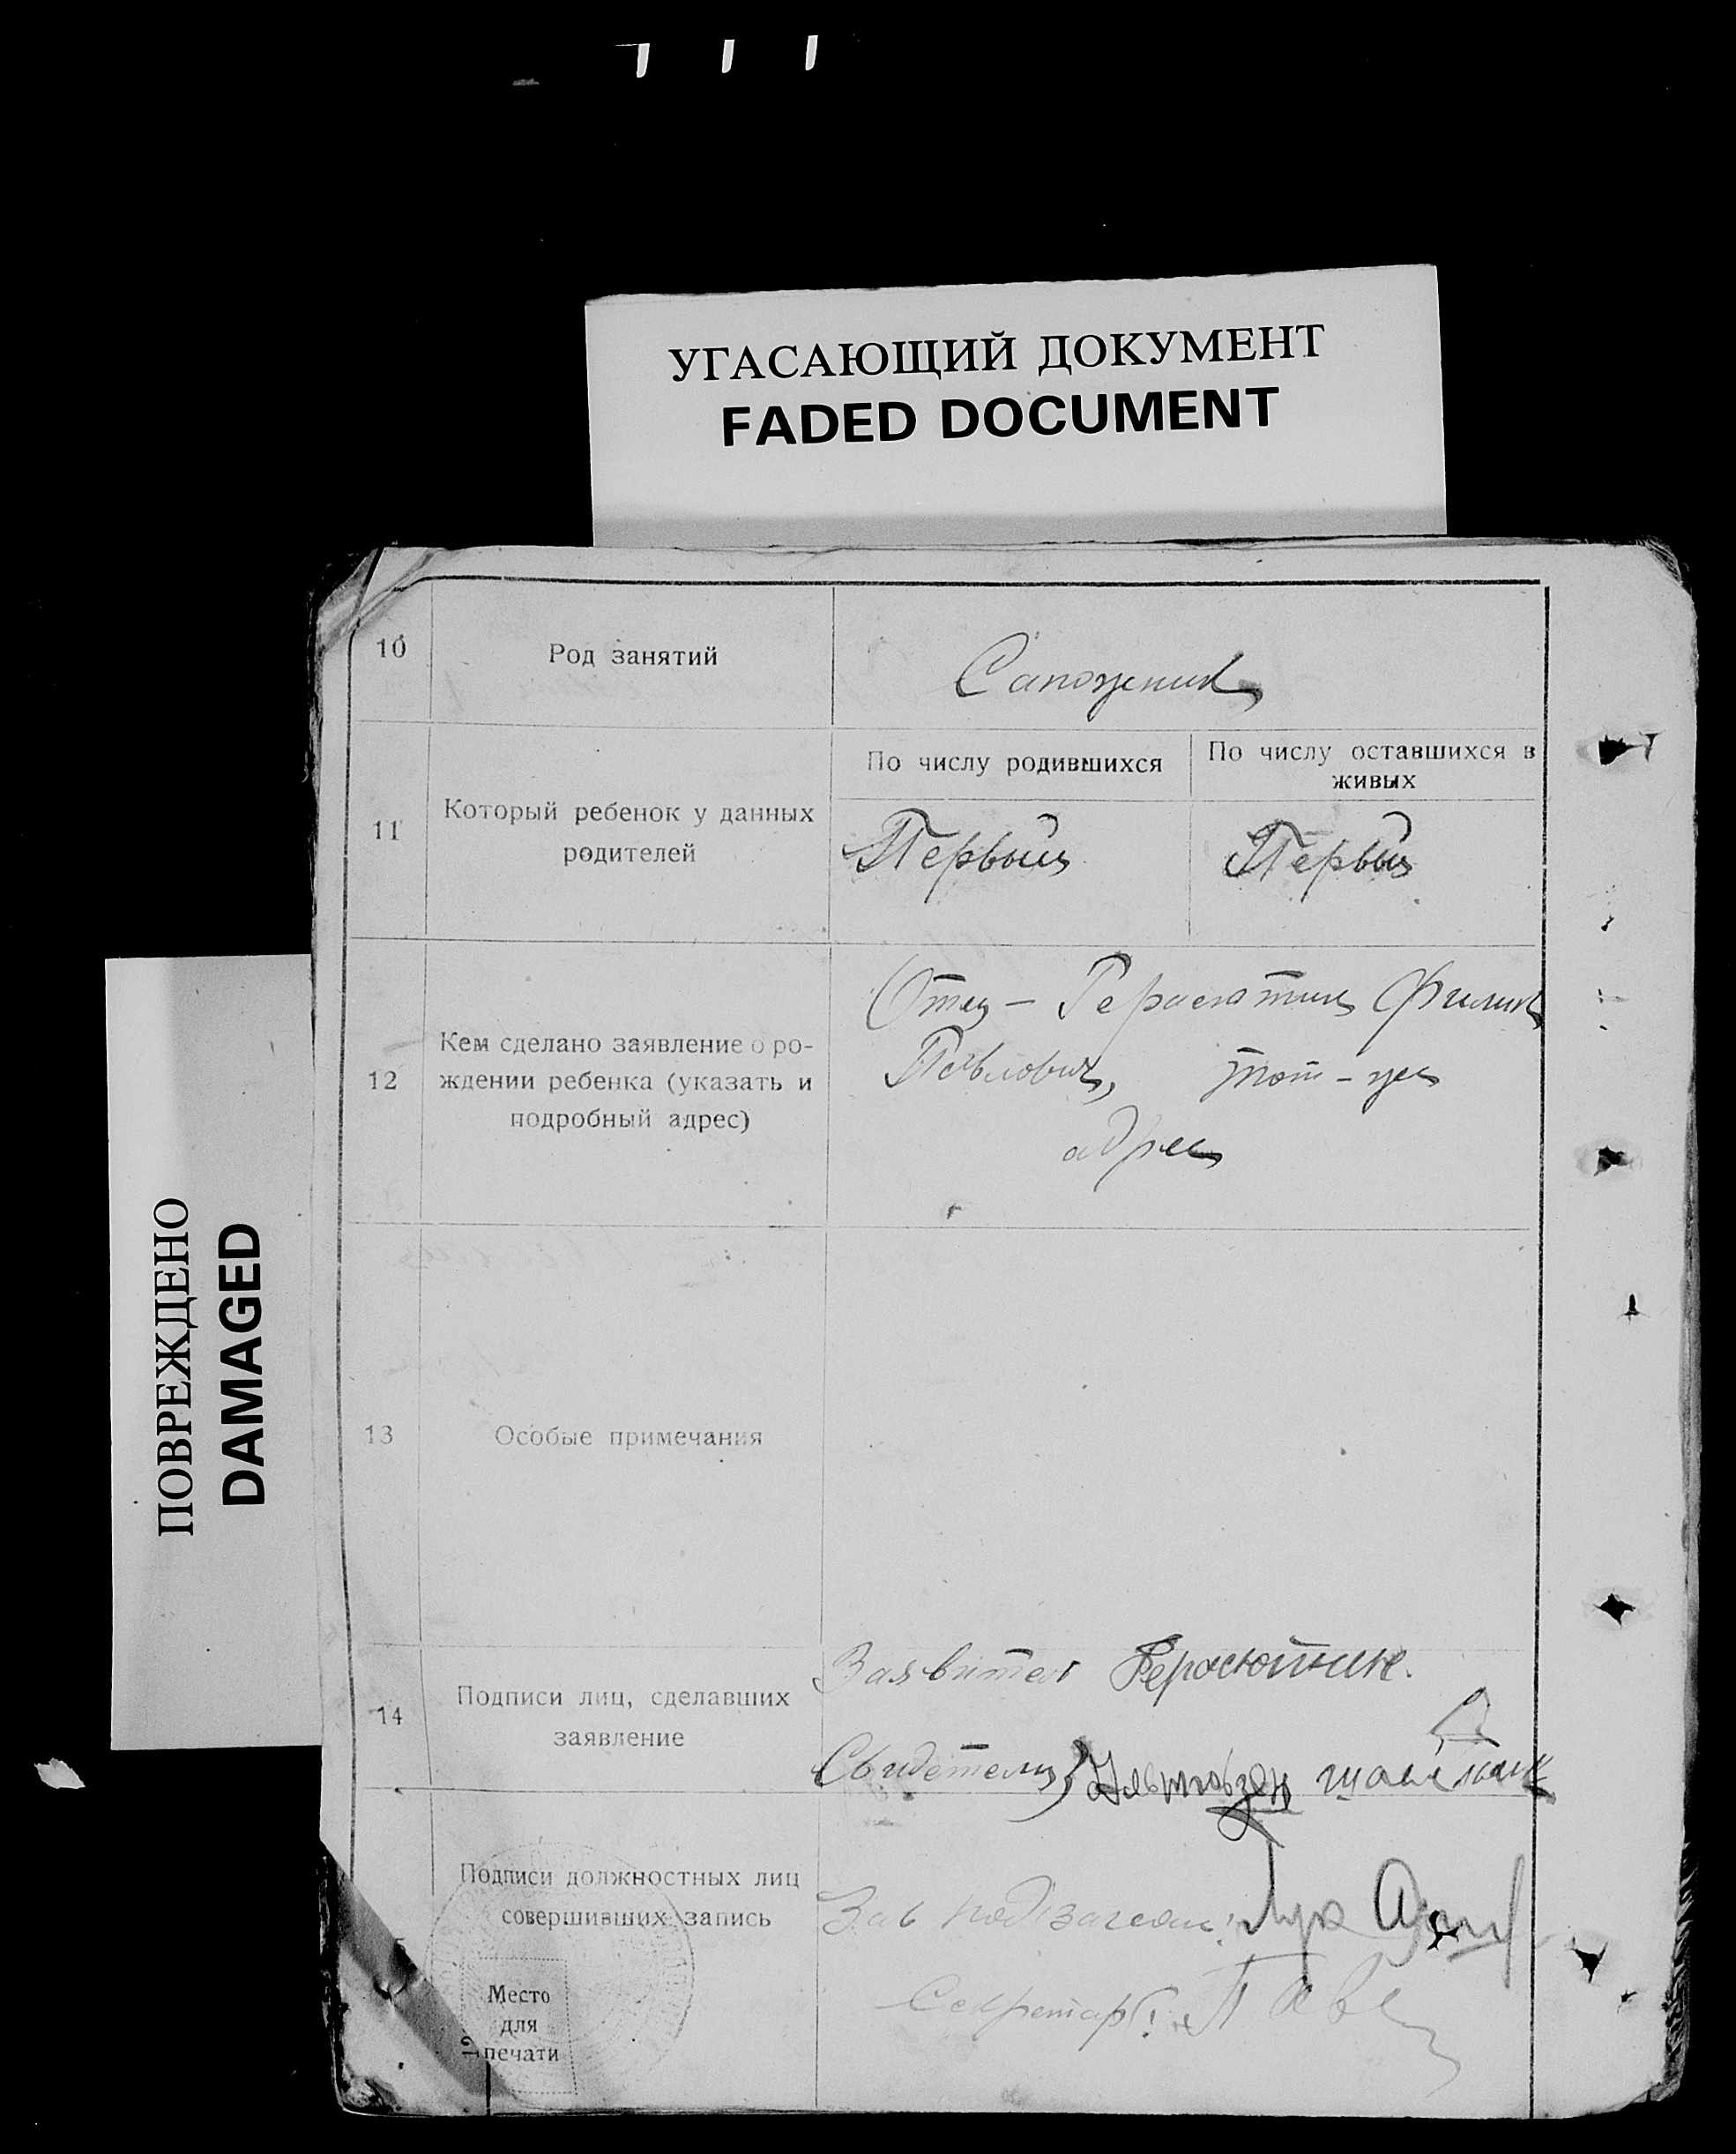 УГАСАЮЩИЙ ДОКУМЕНТ
FADED DOCUMENT
ПОВРЕЖДЕНО
DAMAGED
10
Род занятий
Сапожник
11
Который ребенок у данных
родителей
По числу родившихся
По числу оставшихся в
живых
Первый
Первый
12
Кем сделано заявление о ро-
ждении ребенка (указать и
подробный адрес)
Отец –
Филип
Павлович, тот-же
адрес
13
Особые примечания
14
Подписи лиц, сделавших
заявление
Заявител
Свидетели
Подписи должностных лиц
совершивших запись
Зав
Секретарь:
Место
для
печати